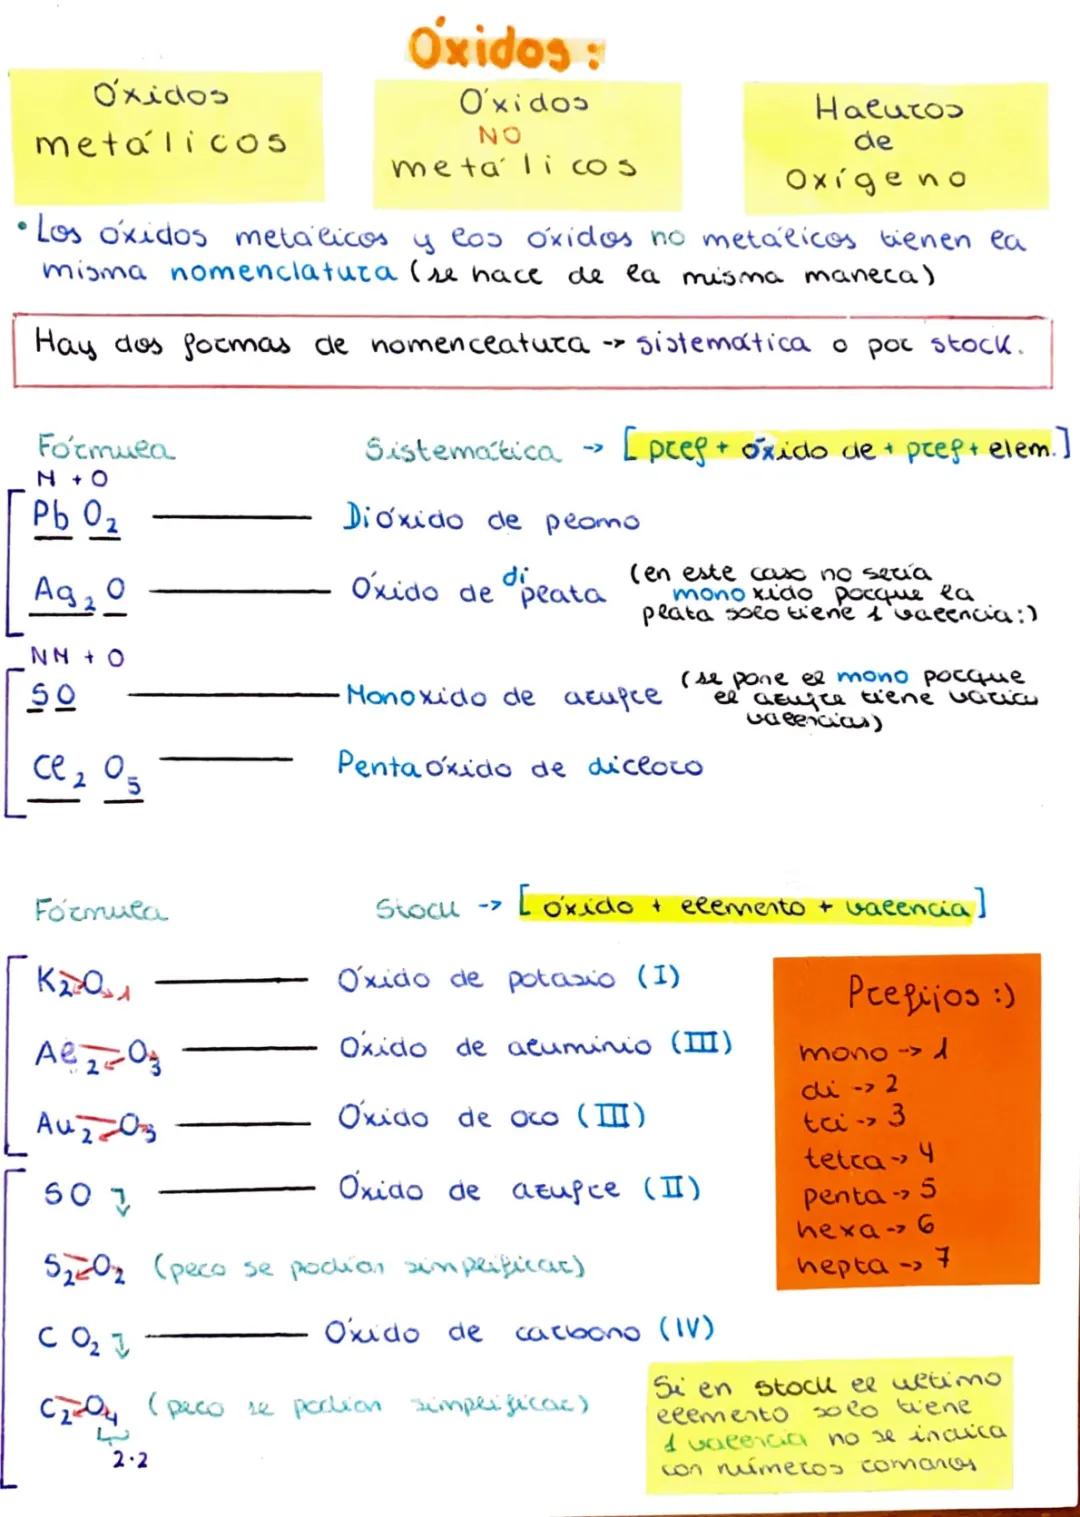 Óxidos:
Óxidos
metálicos
Óxidos
NO
metálicos
Haluros
de
Oxígeno
• Los óxidos metálicos y los óxidos no metálicos tienen la
misma nomenclatura (se hace de la misma manera)
Hay dos formas de nomenclatura -> sistemática o por stock.
Fórmula
Sistemática -> [pref + óxido de + pref + elem.]
M + O
Pb O₂ Dióxido de plomo
Ag₂ O Óxido de diplata (en este caso no sería
monoxido porque la
plata solo tiene 1 valencia:)
NM + O
SO Monoxido de azufre (se pone el mono porque
el azufre tiene varias
valencias)
Cl₂ O₅ Pentaóxido de dicloro
Fórmula
Stock -> [óxido + elemento + valencia]
K₂O 1 Óxido de potasio (I)
Al₂O₃ Óxido de aluminio (III)
Au₂O₃ Óxido de oro (III)
SO Óxido de azufre (II)
S₂O₂ (pero se podían simplificar)
C O₂ Óxido de carbono (IV)
C₂O₄ (pero se podían simplificar)
2·2
Prefijos :)
mono -> 1
di -> 2
tri -> 3
tetra -> 4
penta -> 5
hexa -> 6
hepta -> 7
Si en stock el ultimo
elemento solo tiene
1 valencia no se indica
con números romanos